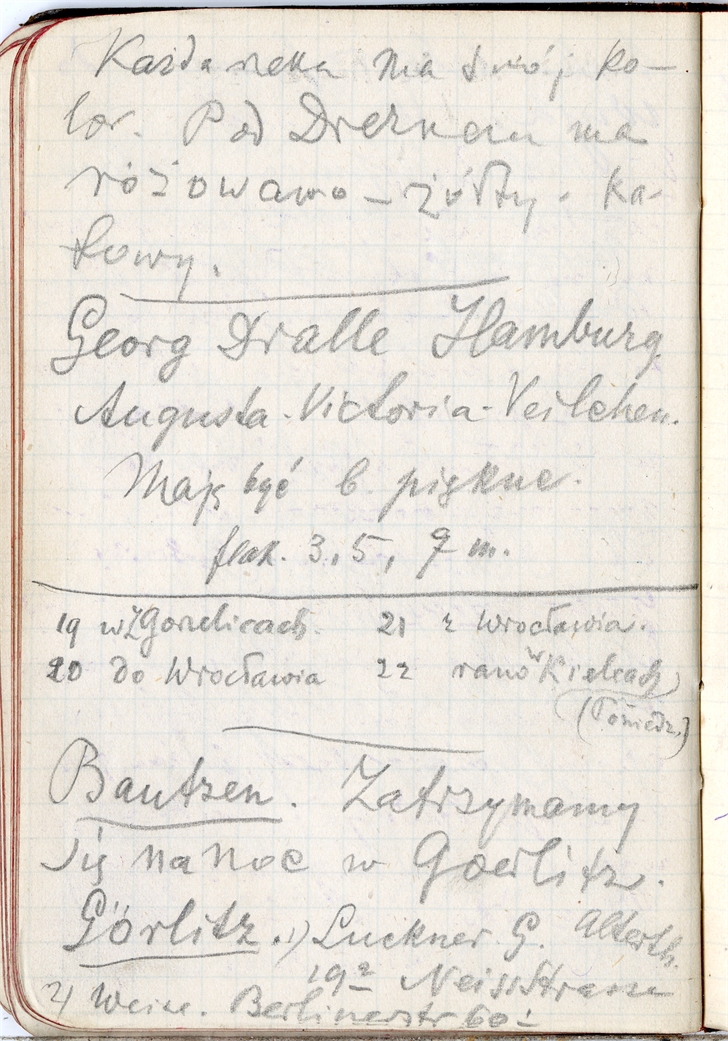 Każda rzeka ma swój ko-
lor. Pod Dreznem ma
różowawo-żółty. Ka-
wowy.
Georg Dralle Hamburg
Augusta-Victoria-Veilchen.
Mają być b piękne.
flak. 3, 5, 9 m.
19 w Zgorzelicach. 21 z Wrocławia.
20 do Wrocławia 22 rano w Kielcach
(Poniedz.)
Bautzen. Zatrzymamy
się na noc w Goerlitz.
Görlitz. 1) Luckner G. Alterth.
19a Neissstrasse
2) Berlinerstr 60